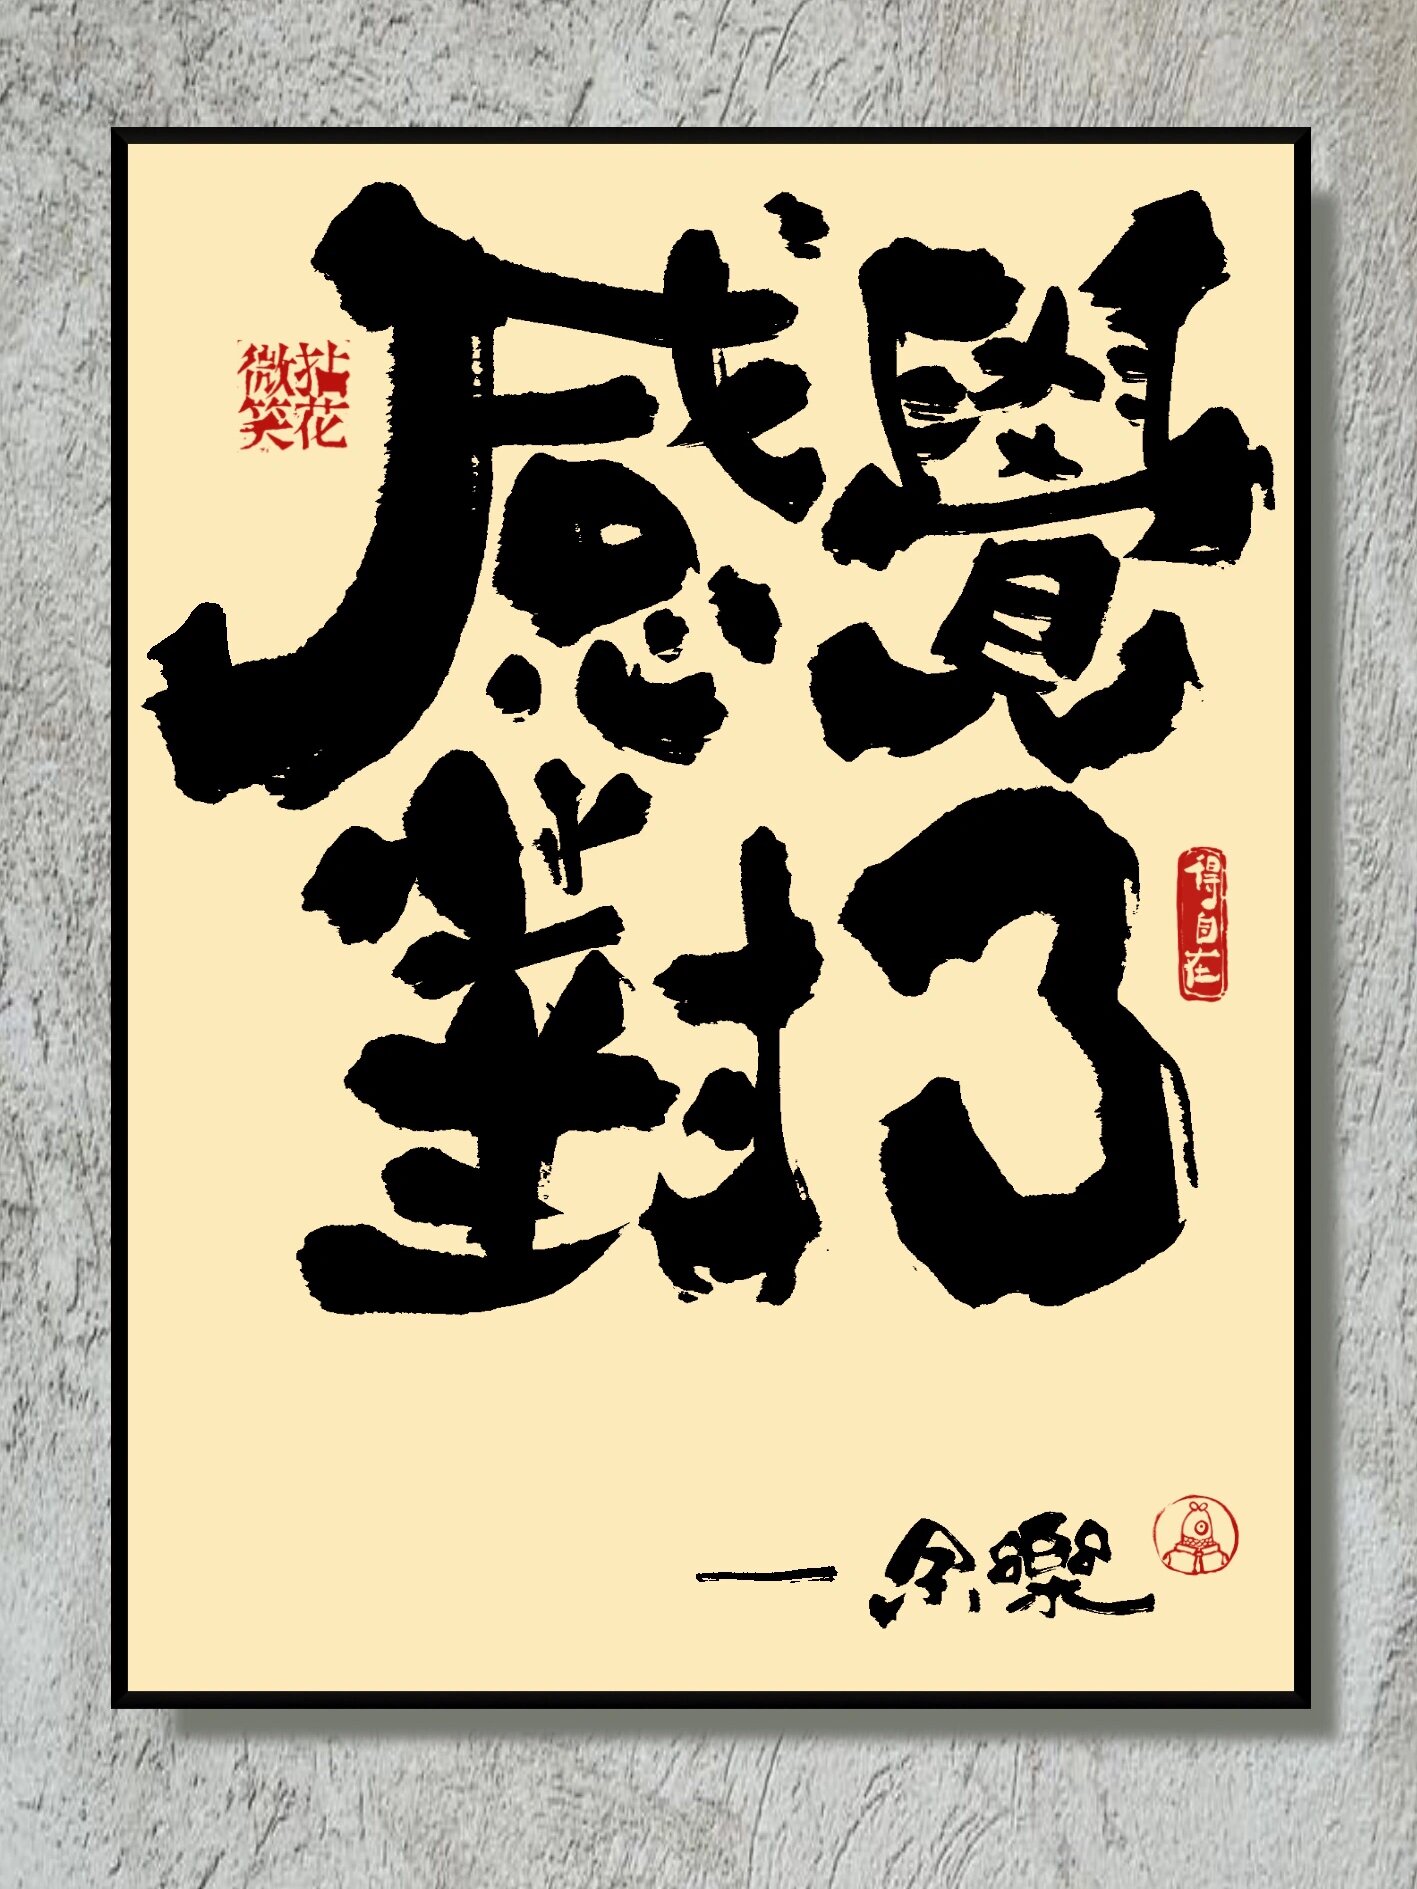 感覺
對了
拈花
微笑
得自在
—余樂